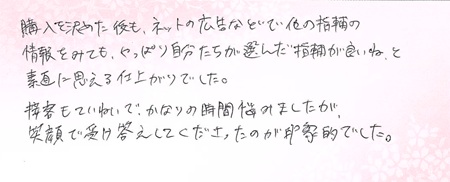 購入を決めた後も、ネットの広告などで他の指輪の
情報をみても、やっぱり自分たちが選んだ指輪が良いね、と
素直に思える仕上がりでした。
接客もていねいで、かなりの時間悩みましたが、
笑顔で受け答えしてくださったのが印象的でした。